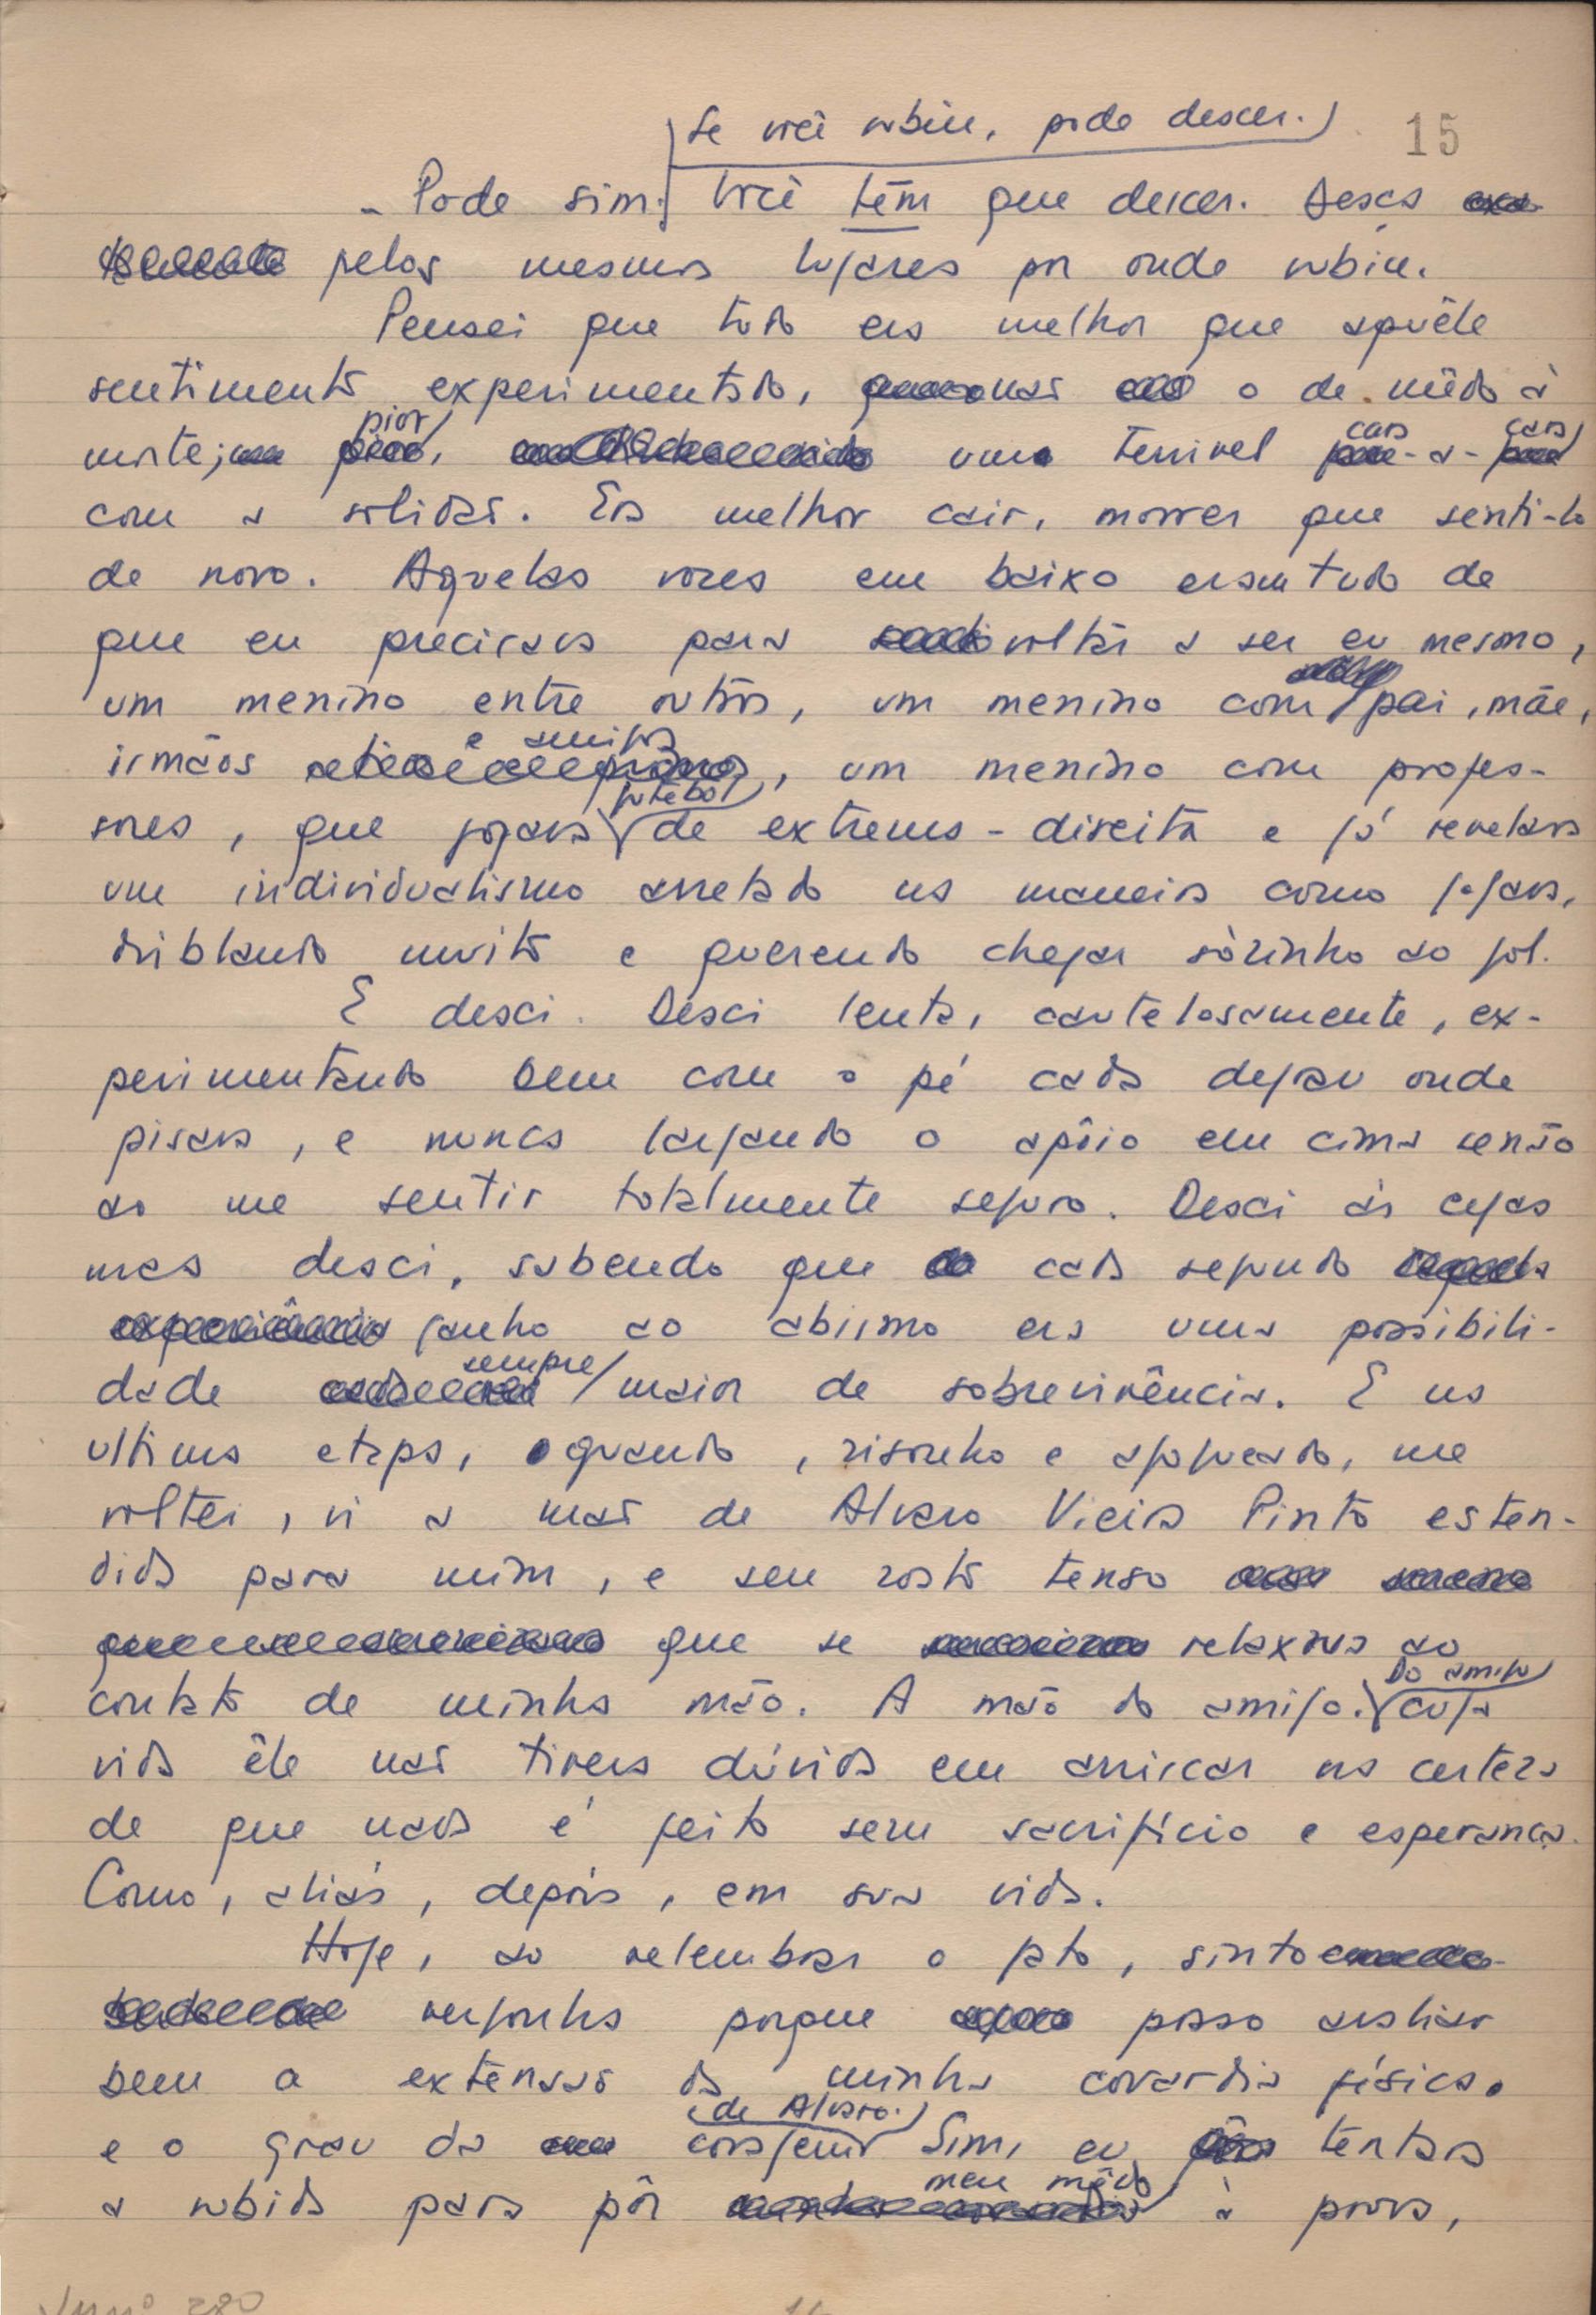 Se você subiu, pode descer. 15
- Pode sim. Você têm que descer. Desça
pelos mesmos lugares por onde subiu.
Pensei que tudo era melhor que aquêle
sentimento experimentado, não o de mêdo à
morte; pior, uma terrivel cara-a-cara
com a solidão. Era melhor cair, morrer que senti-lo
de novo. Aquelas vozes em baixo eram tudo de
que eu precisava para voltar a ser eu mesmo,
um menino entre outros, um menino com pai, mãe,
irmãos e amigos, um menino com profes-
sores, que jogava futebol de extrema-direita e já revelava
um individualismo arretado na maneira como jogava,
driblando muito e querendo chegar sòzinho ao gol.
E desci. Desci lenta, cautelosamente, ex-
perimentando bem com o pé cada degrau onde
pisava, e nunca largando o apôio em cima senão
ao me sentir totalmente seguro. Desci às cegas
mas desci, sabendo que cada segundo
ganho ao abismo era uma possibili-
dade sempre maior de sobrevivência. E na
ultima etapa, quando, risonho e afogueado, me
voltei, vi a mão de Alvaro Vieira Pinto esten-
dida para mim, e seu rosto tenso
que se relaxava ao
contato de minha mão. A mão do amigo. Do amigo cuja
vida êle não tivera dúvida em arriscar na certeza
de que nada é feito sem sacrifício e esperança.
Como, aliás, depois, em sua vida.
Hoje, ao relembrar o fato, sinto
vergonha porque posso avaliar
bem a extensão da minha covardia física
e o grau da coragem de Alvaro. Sim, eu tentara
a subida para pôr meu mêdo à prova,